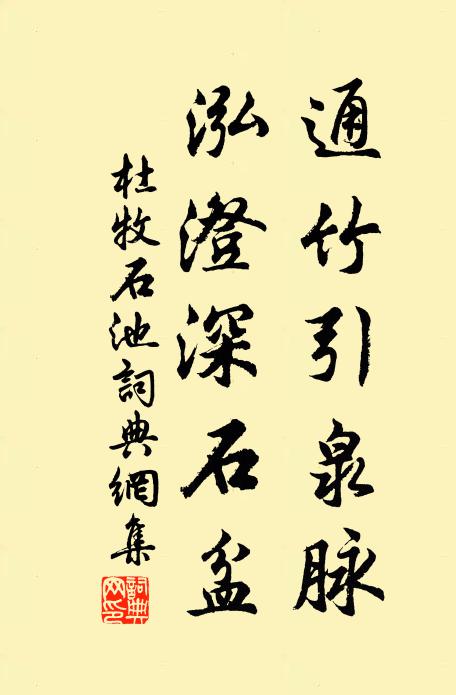 通竹引泉脉
泓澄深石盆
杜牧石池詞典網集
詞典网印